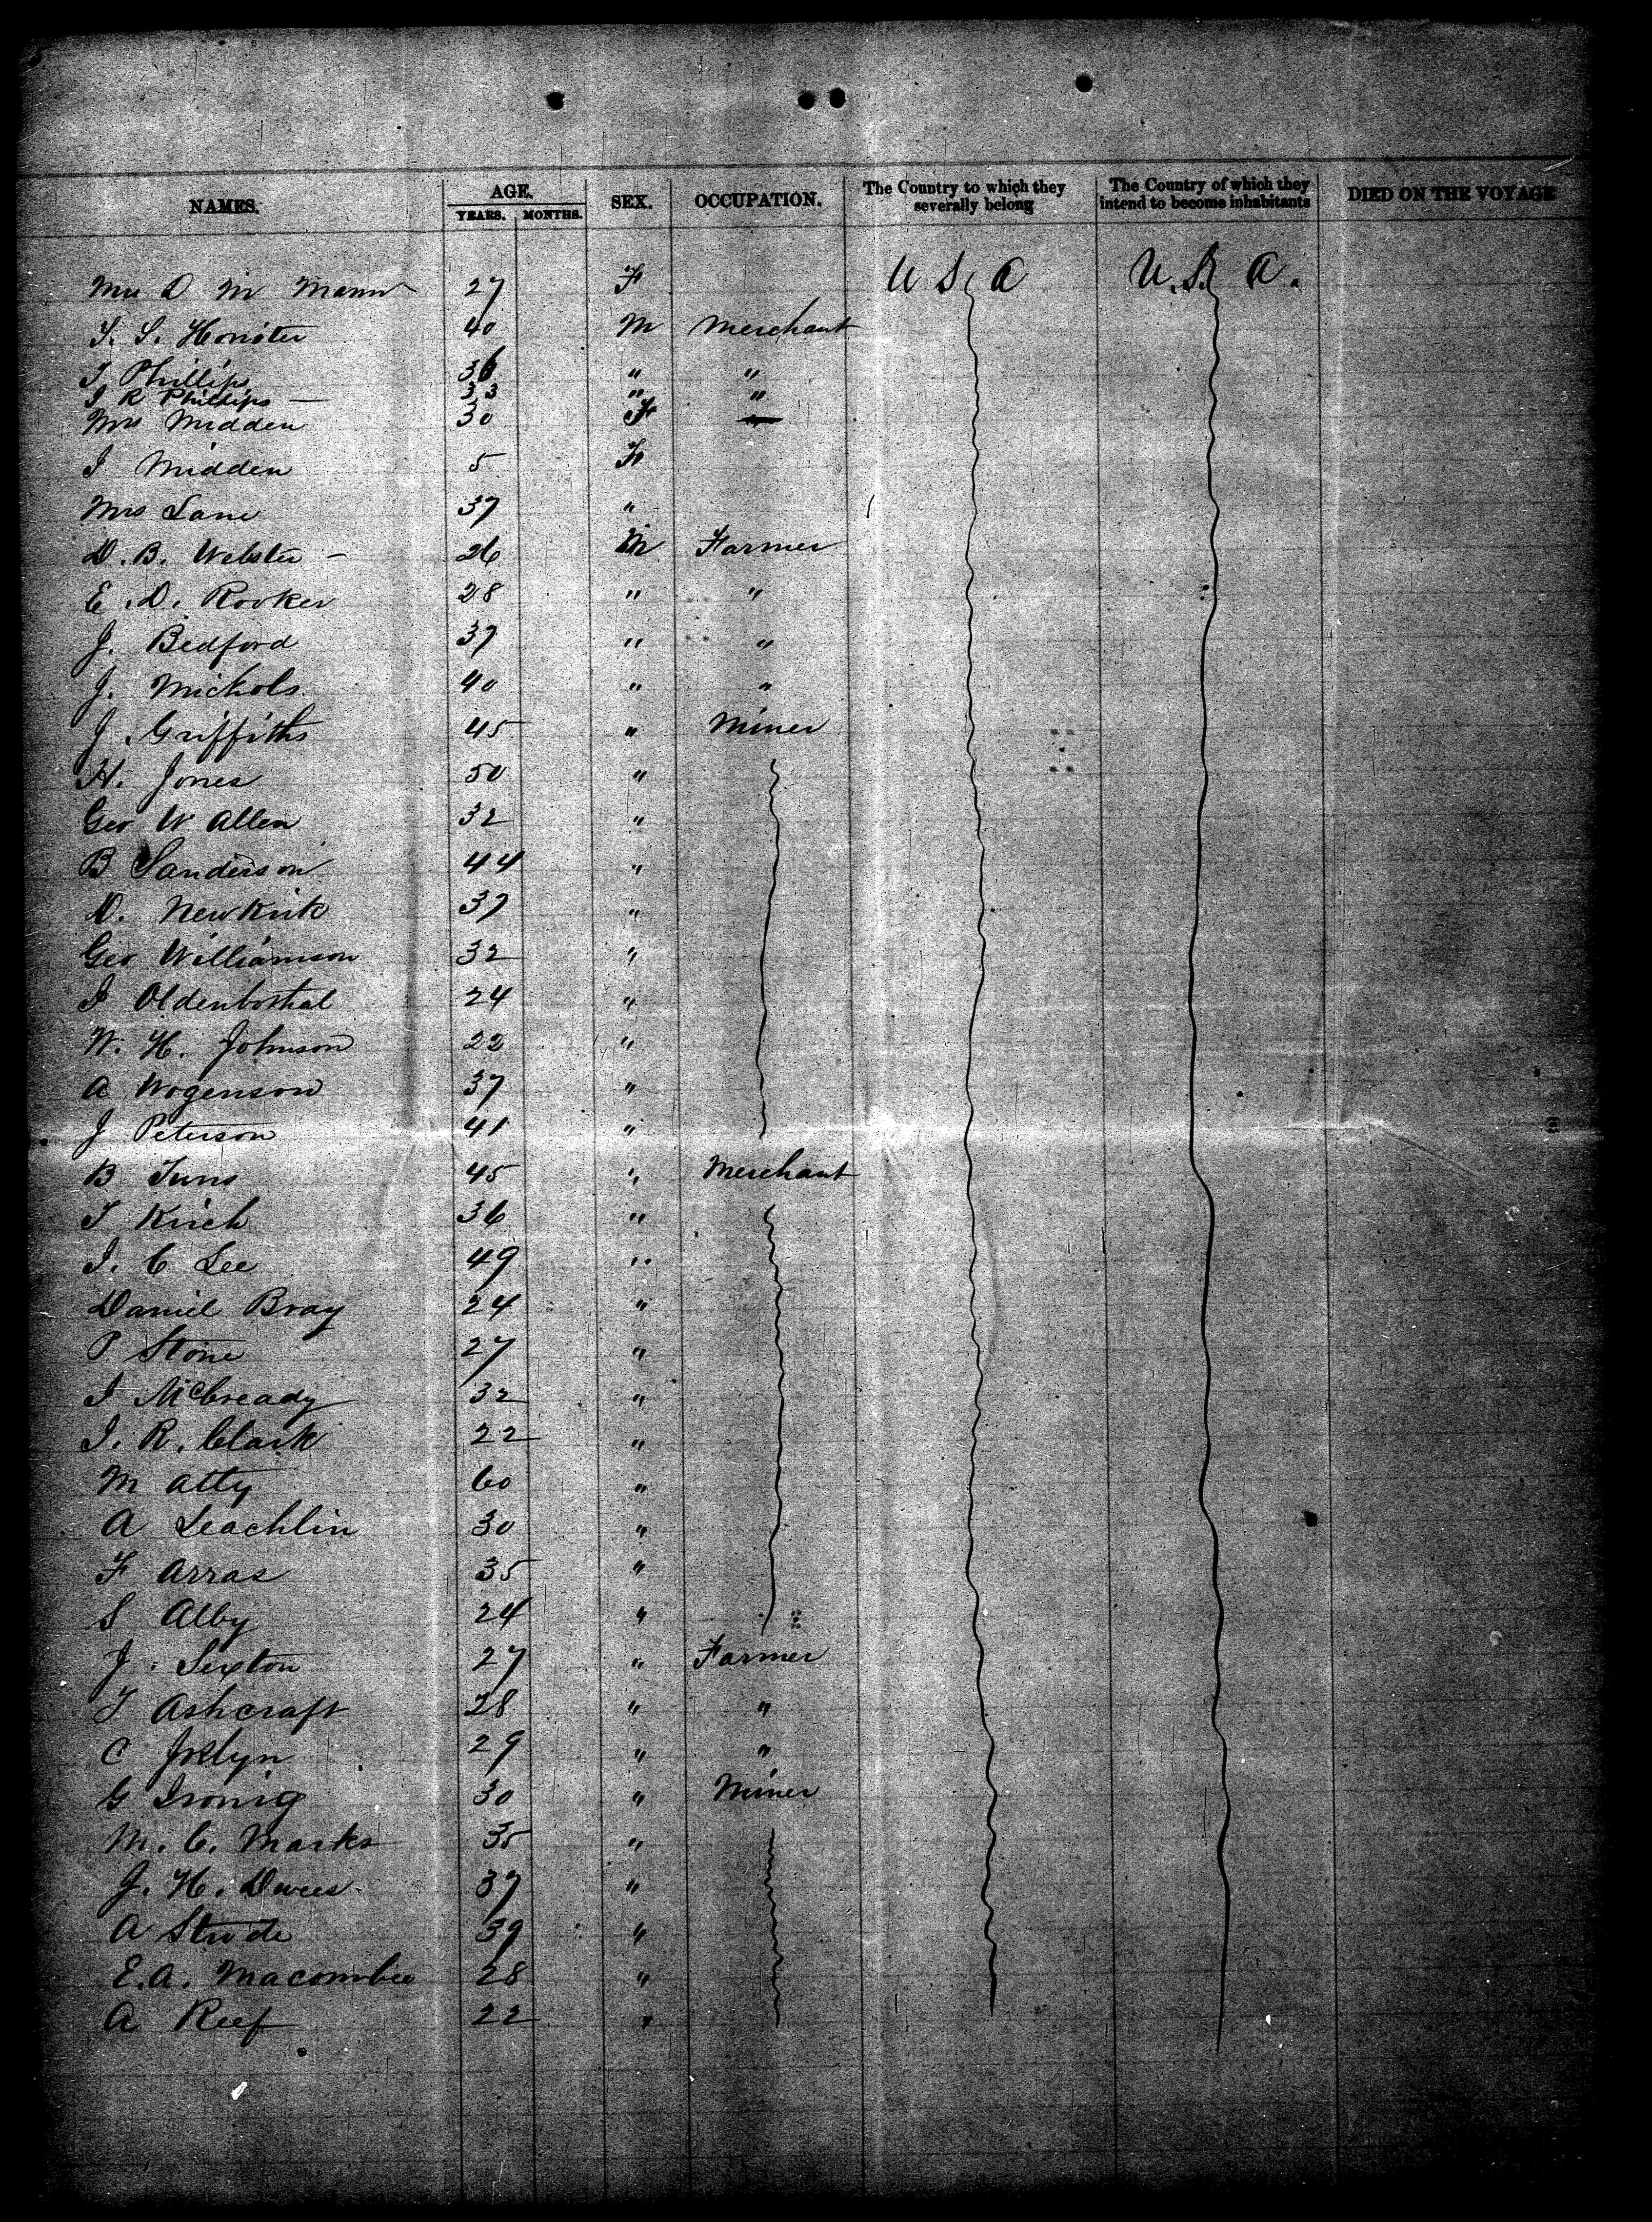 NAMES. AGE. SEX. OCCUPATION. The Country to which they severally belong The Country of which they intend to become inhabitants DIED ON THE VOYAGE
YEARS. MONTHS.
Mrs D M Mann 27 F U S A U.S. A.
40 M Merchant
I Phillips 36 " "
I R Phillips — 33 " "
Mrs Midden 30 F
I Midden 5 F
Mrs Lane 37 "
D. B. Webster – 26 M Farmer
E. D. Rooker 28 " "
J. Bedford 37 " "
J. Michols 40 " "
J. Griffiths 45 " Miner
H. Jones 50 "
Geo W Allen 32 "
B Sanderson 44 "
D. Newkirk 37 "
Geo Williamson 32 "
I Oldenbosthal 24 "
W. H. Johnson 22 "
A Wogenson 37 "
J Peterson 41 "
B 45 " Merchant
36 "
I. C Lee 49 "
Daniel Bray 24 "
P Stone 27 "
I McCready 32 "
I. R. Clark 22 "
M Atty 60 "
A Leachlin 30 "
F Arras 35 "
S Alby 24 "
J. Sexton 27 " Farmer
T Ashcraft 28 " "
C 29 " "
G Ironig 30 " Miner
M. C. Marks 35 "
J. H. 37 "
A Strode 39 "
E. A. Macomber 28 "
A Reef 22 "